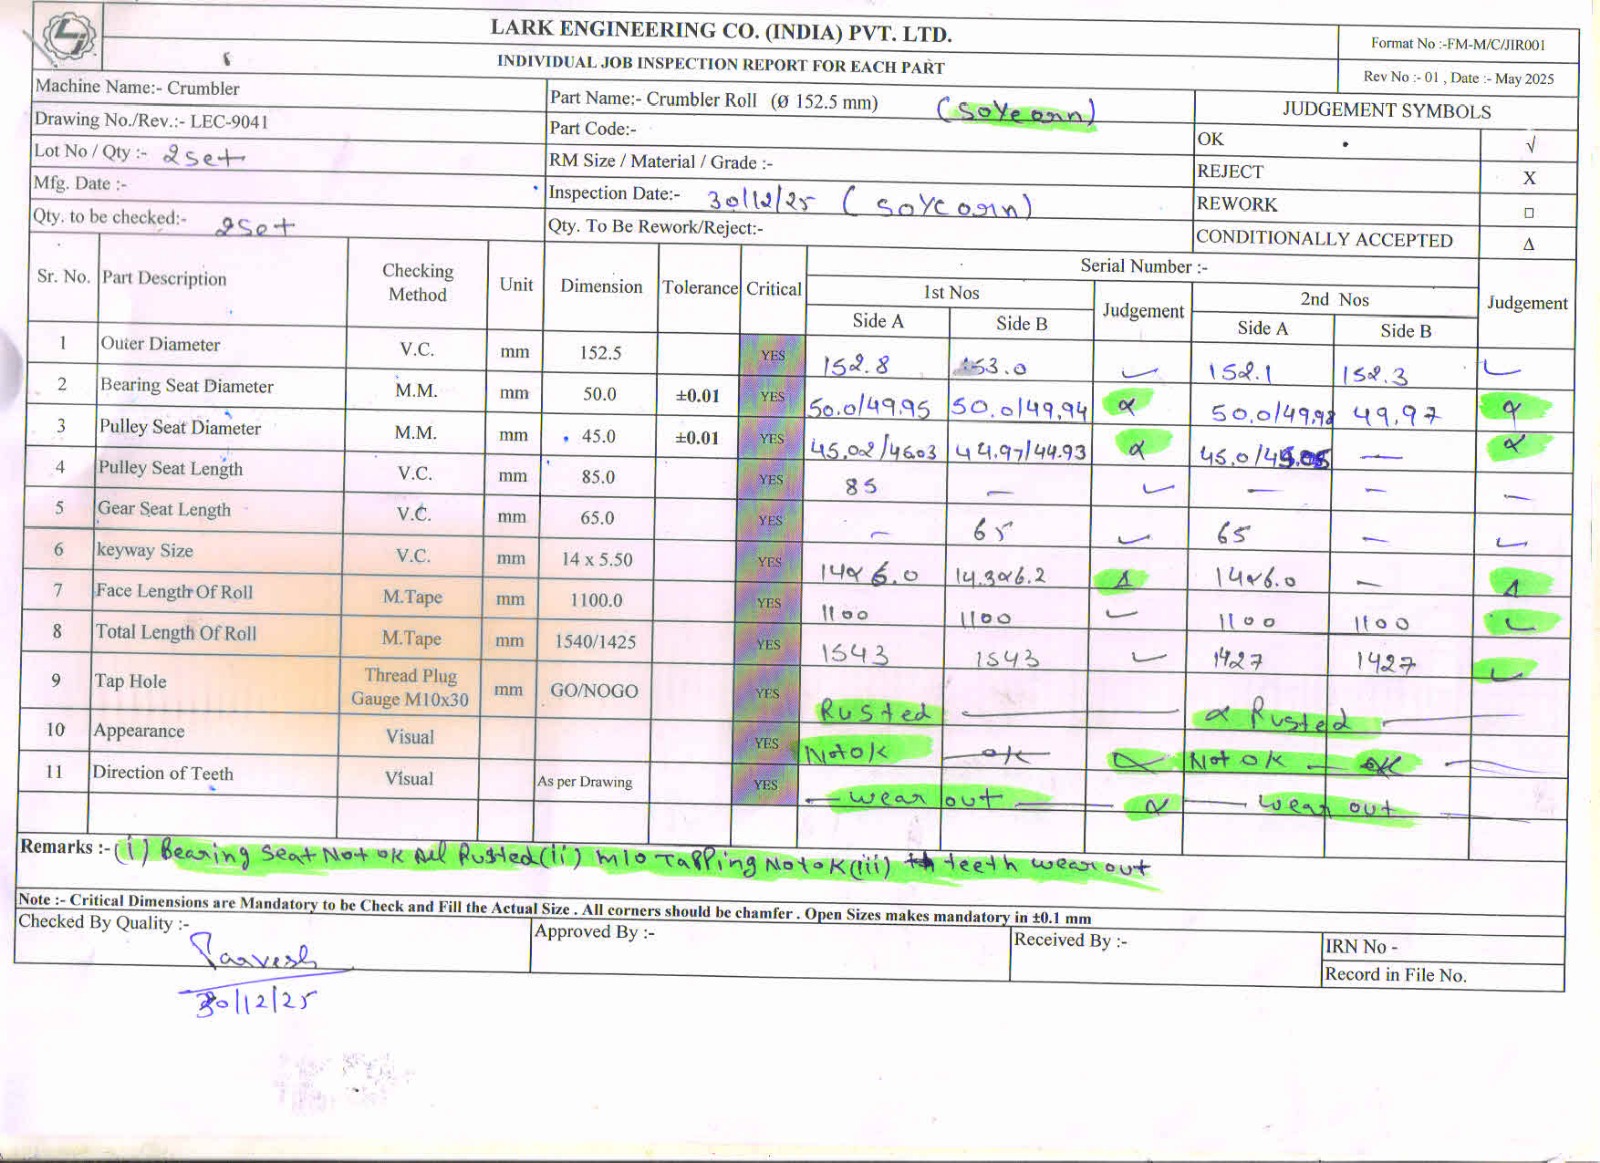 LARK ENGINEERING CO. (INDIA) PVT. LTD.
INDIVIDUAL JOB INSPECTION REPORT FOR EACH PART
Format No :-FM-M/C/JIR001
Rev No :- 01 , Date :- May 2025
Machine Name:- Crumbler
Part Name:- Crumbler Roll (Ø 152.5 mm) (SoYcorn)
JUDGEMENT SYMBOLS
Drawing No./Rev.:- LEC-9041
Part Code:-
OK √
Lot No / Qty :- 2set
RM Size / Material / Grade :-
REJECT X
Mfg. Date :-
Inspection Date:- 30/12/25 (SoYcorn)
REWORK □
Qty. to be checked:- 2Set
Qty. To Be Rework/Reject:-
CONDITIONALLY ACCEPTED Δ
Sr. No. Part Description Checking Method Unit Dimension Tolerance Critical Serial Number :-
1st Nos Judgement 2nd Nos Judgement
Side A Side B Side A Side B
1 Outer Diameter V.C. mm 152.5 YES 152.8 153.0 ✓ 152.1 152.3 ✓
2 Bearing Seat Diameter M.M. mm 50.0 ±0.01 YES 50.0/49.95 50.0/49.94 X 50.0/49.98 49.97 X
3 Pulley Seat Diameter M.M. mm 45.0 ±0.01 YES 45.02/45.03 44.97/44.93 X 45.0/ — X
4 Pulley Seat Length V.C. mm 85.0 YES 85 — ✓ — — —
5 Gear Seat Length V.C. mm 65.0 YES — 65 ✓ 65 — ✓
6 keyway Size V.C. mm 14 x 5.50 YES 14x6.0 14.3x6.2 Δ 14x6.0 — Δ
7 Face Length Of Roll M.Tape mm 1100.0 YES 1100 1100 ✓ 1100 1100 ✓
8 Total Length Of Roll M.Tape mm 1540/1425 YES 1543 1543 ✓ 1427 1427 ✓
9 Tap Hole Thread Plug Gauge M10x30 mm GO/NOGO YES Rusted — X Rusted —
10 Appearance Visual YES Not ok — ok — X Not ok — ok —
11 Direction of Teeth Visual As per Drawing YES — wear out — X — wear out —
Remarks :- (i) Bearing Seat Not ok All Rusted (ii) M10 Tapping Not oK (iii) teeth wear out
Note :- Critical Dimensions are Mandatory to be Check and Fill the Actual Size . All corners should be chamfer . Open Sizes makes mandatory in ±0.1 mm
Checked By Quality :-
Approved By :-
Received By :-
IRN No -
Record in File No.
Parvesh
30/12/25